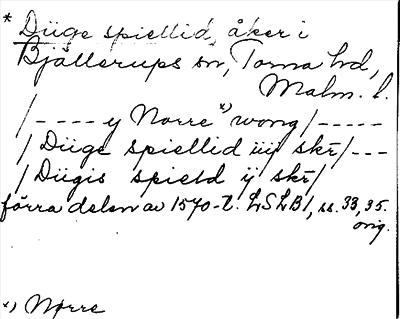 * Düge spiellid, åker i
Bjällerups sn, Torna hd,
Malm. l.
/---- y Norre x) wong/-----
/ Düge spiellid iiij skr̄/---
/ Dügis spield ij skr̄/
förra delen av 1570-t. LSLB1, ss. 33, 35.
orig.
x) Nørre